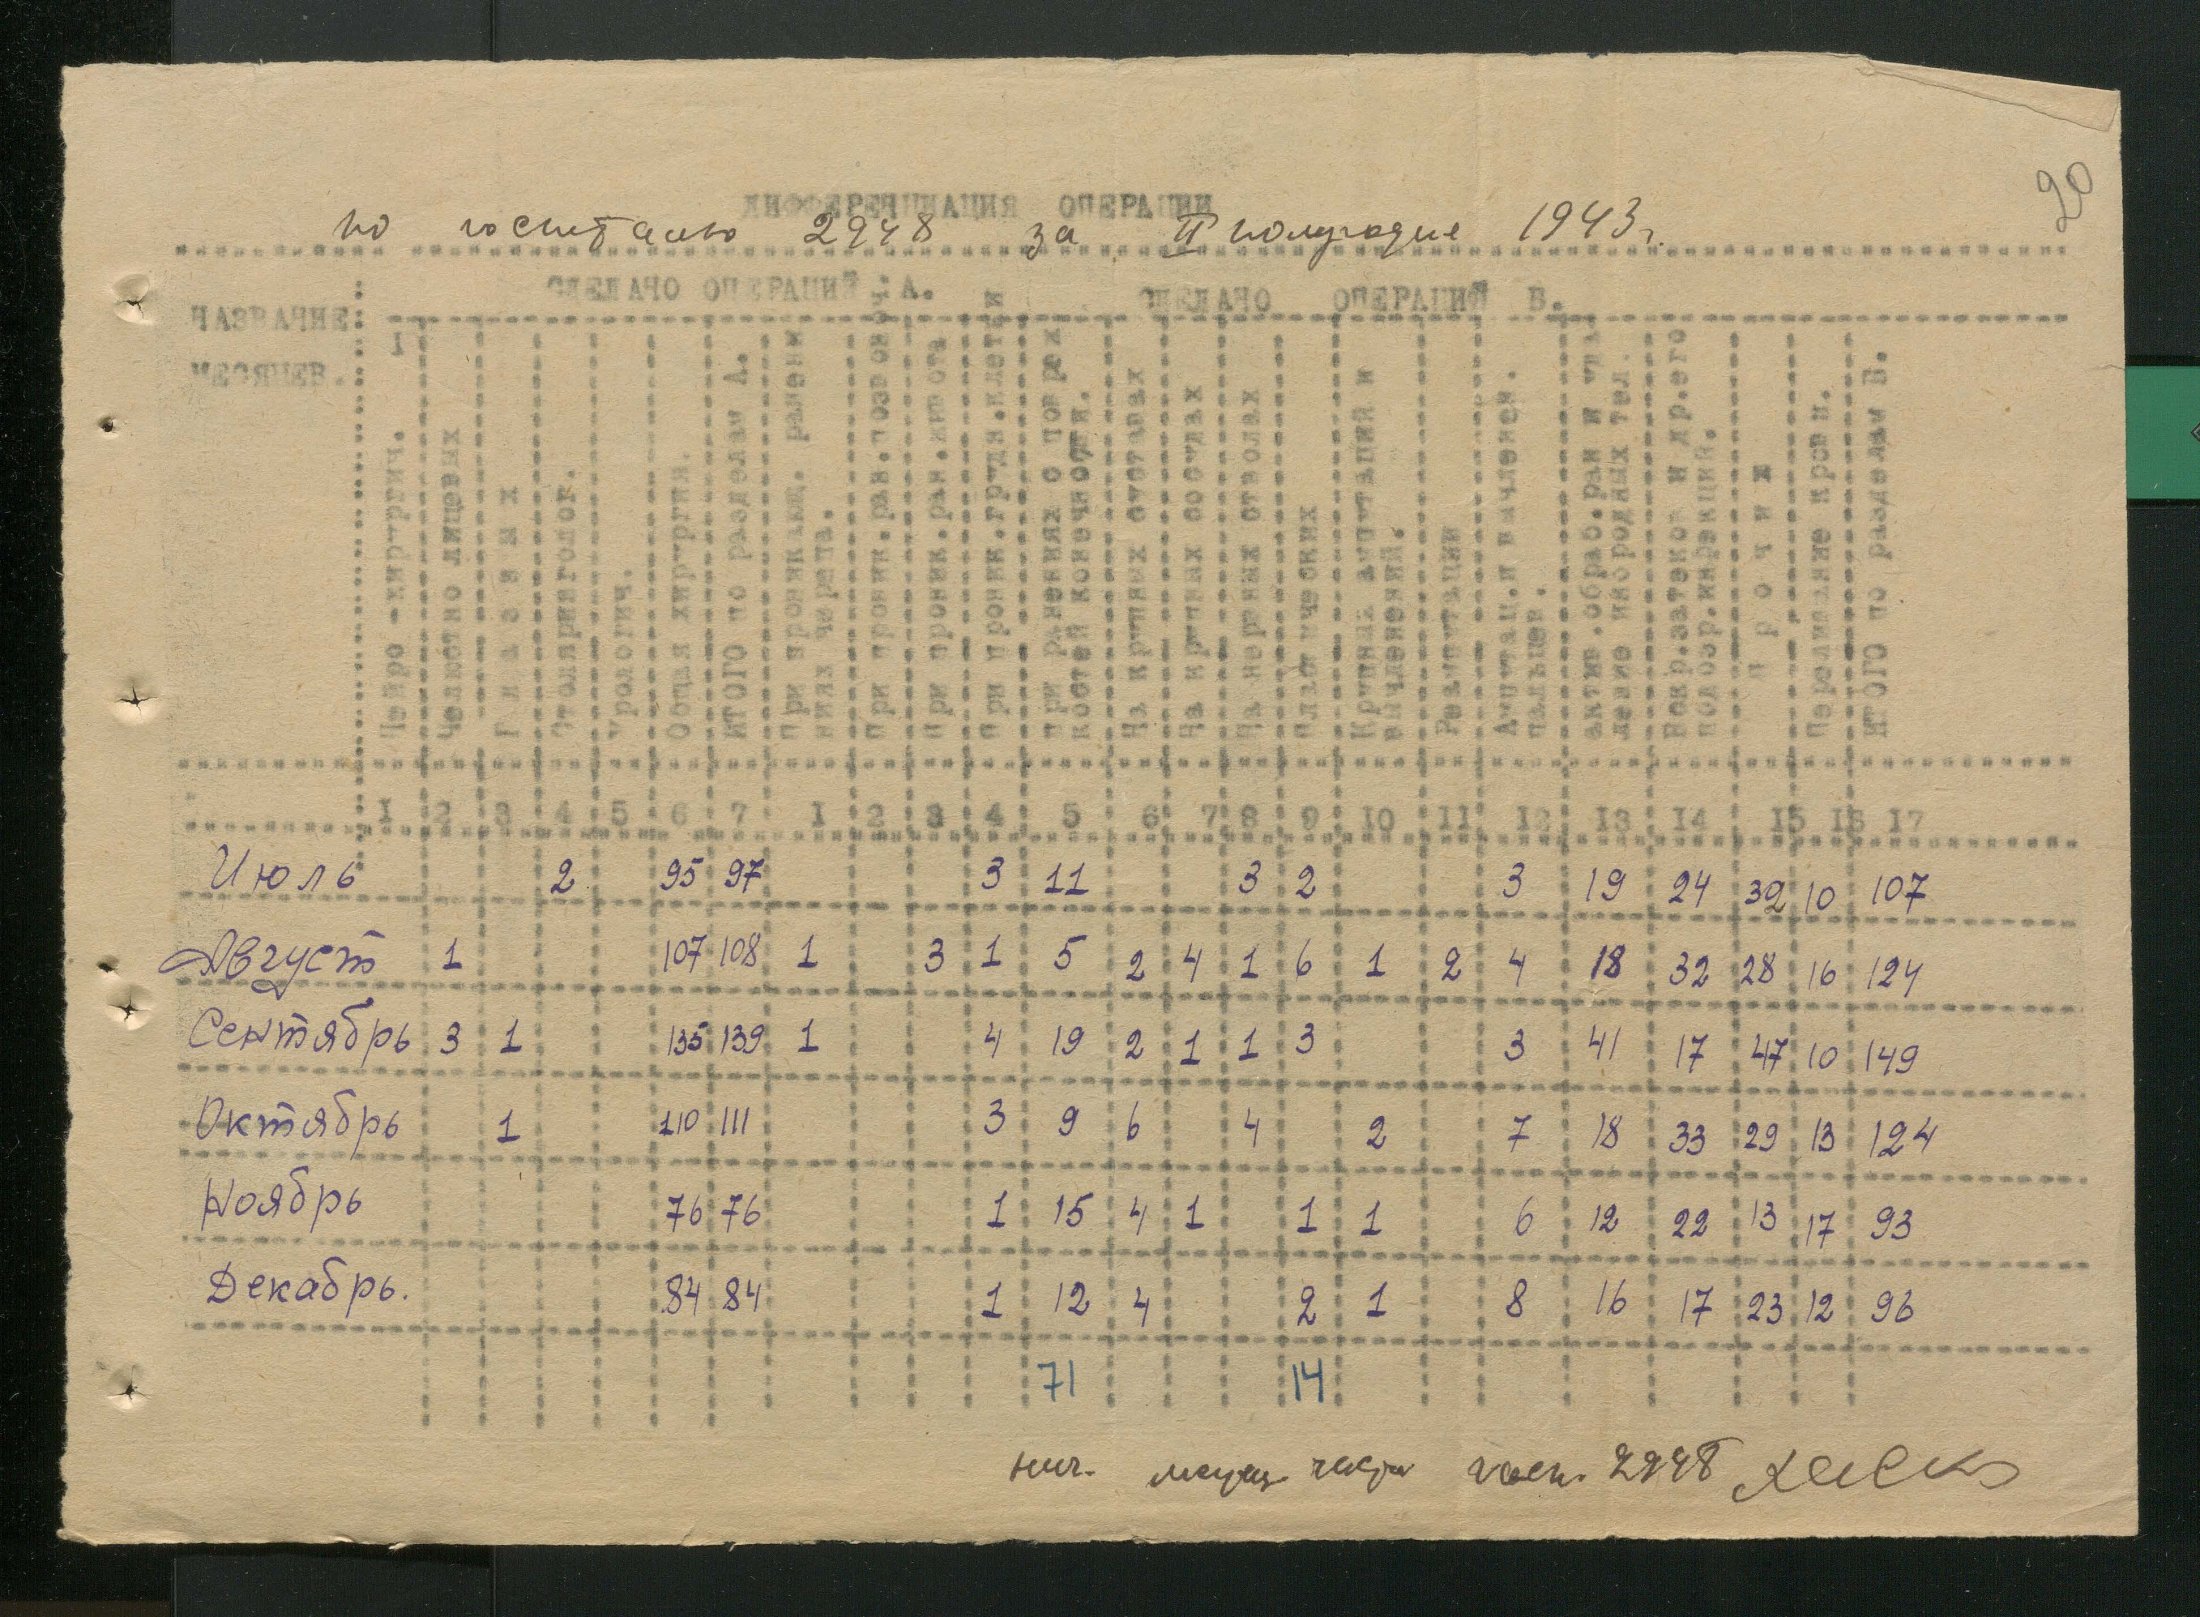 20
ДИФФЕРЕНЦИАЦИЯ ОПЕРАЦИИ
по госпиталю 2948 за II полугодие 1943 г.
НАЗВАНИЕ МЕСЯЦЕВ.
СДЕЛАНО ОПЕРАЦИЙ А.
СДЕЛАНО ОПЕРАЦИЙ В.
Нейро-хирургич.
Челюстно лицевых
Г л а з н ы х
Отоляринголог.
Урологич.
Общая хирургия.
ИТОГО по разделам А.
При проникающ. ранени
ниях черепа.
При проник.ран.позвоноч.
При проник.ран.живота
При проник.грудн.клетки
При ранениях с повреж
костей конечности.
На крупных суставах
На крупных сосудах
На нервных стволах
Пластических
Крупных ампутаций и
вычленений.
Реампутации
Ампутац.и вычленен.
пальцев.
актив.обраб.ран и уда
ление инородных тел.
Вскр.затеков и др.его
подозр.инфекций.
П р о ч и х
Переливание крови.
ИТОГО по разделам В.
1 2 3 4 5 6 7 1 2 3 4 5 6 7 8 9 10 11 12 13 14 15 16 17
Июль 2 95 97 3 11 3 2 3 19 24 32 10 107
Август 1 107 108 1 3 1 5 2 4 1 6 1 2 4 18 32 28 16 124
Сентябрь 3 1 135 139 1 4 19 2 1 1 3 3 41 17 47 10 149
Октябрь 1 110 111 3 9 6 4 2 7 18 33 29 13 124
Ноябрь 76 76 1 15 4 1 1 1 6 12 22 13 17 93
Декабрь. 84 84 1 12 4 2 1 8 16 17 23 12 96
71 14
нач. части госп. 2948